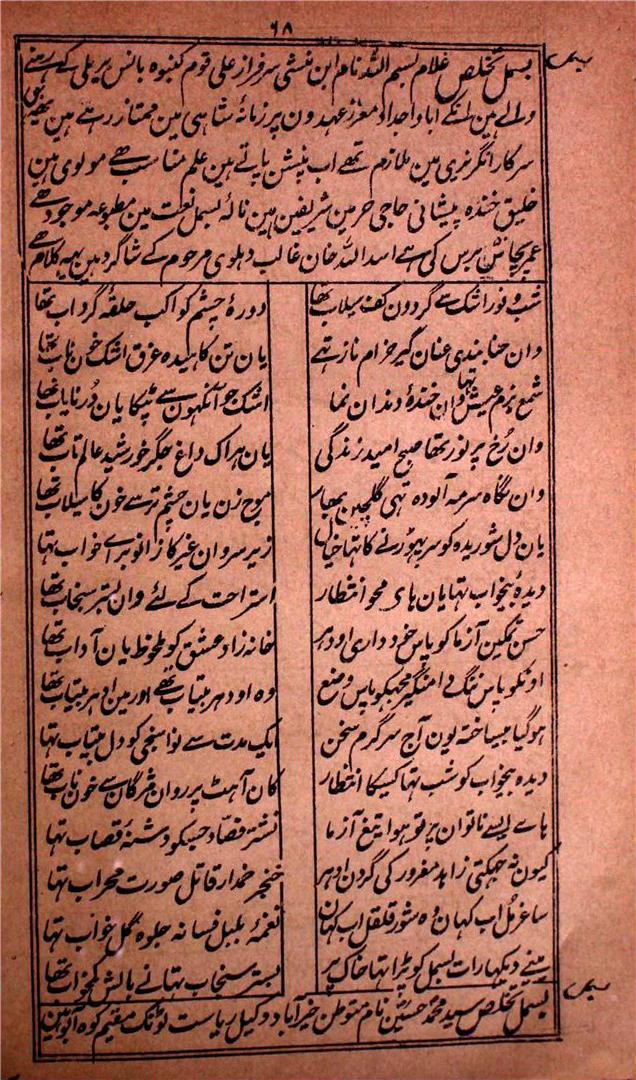 ۶۸
بسمل
بسمل تخلص غلام بسم اللہ نام ابن منشی سرفراز علی قوم کنبوہ بانس بریلی کے رہنے
والے ہین انکے اباواجداد معزز عہدون پر زمانۂ شاہی مین ممتاز رہے ہین
سرکار انگریزی مین ملازم تھے اب پنشن پاتے ہین علم مناسب ہے مولوی ہین
خلیق خندہ پیشانی حاجی حرمین شریفین ہین نالۂ بسمل نعت مین مطبوعہ موجود ہے
عمر پچاس برس کی ہے اسد اللہ خان غالب دہلوی مرحوم کے شاگرد ہین یہہ کلام ہے
شب وفور اشک سے گردون کف سیلاب تھا دورۂ چشم کواکب حلقۂ گرداب تھا
وان حنا بندی عنان گیر خرام ناز تھے یان تن کاہیدہ غرق اشک خون ناب تھا
شمع بزم عیش وان خندۂ دندان نما تہا اشک جو آنکہون سے ٹپکا یان دُر نایاب تھا
وان رُخ پر نور تھا صبح امید زندگی یان ہر اک داغ جگر خورشید عالم تاب تھا
وان نگاہ سرمہ آلودہ تہی گلچین بہار موج زن یان چشم تر سے خون کا سیلاب تھا
یان دل شوریدہ کو سر پہوڑنے کا تہا خیال زیر سر وان غیر کا زانو برای خواب تہا
دیدۂ بیخواب تہا یان ہای محو انتظار استراحت کے لئے وان بستر سنجاب تھا
حسن تمکین آزما کو پاس خودداری اودہر خانہ زاد عشق کو ملحوظ یان آداب تھا
اونکو پاس ننگ دامنگیر مجہکو پاس وضع وہ اودہر بیتاب تھے اور مین ادہر بیتاب تھا
ہوگیا بیساختہ یون آج سرگرم سخن ایک مدت سے نواسنجی کو دل بیتاب تہا
دیدہ بیخواب کو شب تہا کسیکا انتظار کان آہٹ پر روان مژگان سے خون ناب تھا
ہاے ایسے ناتوان پر تو ہوا تیغ آزما نشتر فصاد جسکو دشنۂ قصاب تہا
کیون نہ جہکتی زاہد مغرور کی گردن ادہر خنجر خمدار قاتل صورت محراب تہا
ساغر مُل اب کہان وہ شور قلقل اب کہان نغمۂ بلبل فسانہ جلوۂ گل خواب تہا
مینے دیکہا رات بسمل کو پڑا تہا خاک پر بستر سنجاب تہا نے بالش کمخواب تھا
بسمل
بسمل تخلص سید محمد حسین نام متوطن خیرآباد وکیل ریاست ٹونک مقیم کوہ آبو ہین